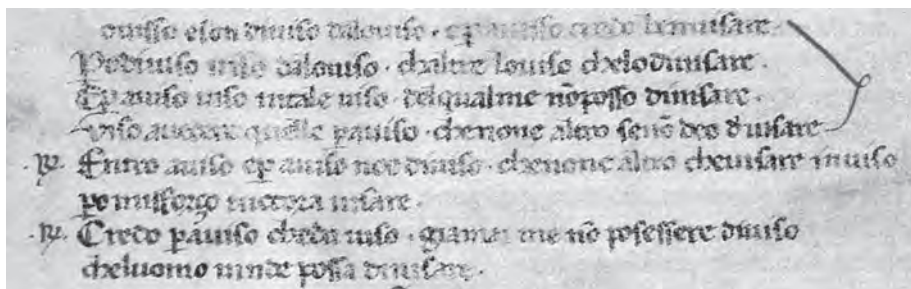 diuiso e son diuiso dalouiso · e p auiso credo bē uisare
Podiuiso uiso dalouiso · chaltre louiso chelo diuisare ·
Ep auiso uiso intale uiso · delqualme nō posso diuisare ·
uiso auedere quelle p auiso · chenone altro senō deo diuisare
·R̃· Entro auiso ep auiso noe diuiso · chenone altro cheuisare inuiso
po misforço tuctora uisare ·
·R̃· Credo p auiso cheda uiso · giamai me nō posessere diuiso
cheluomo ninde possa diuisare ·